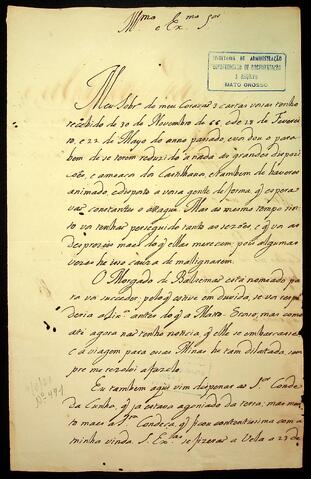 Illmo e Exmo Snr
SECRETARIA DE ADMINISTRAÇÃO
DEPARTAMENTO DE DOCUMENTAÇÃO
E ARQUIVO
MATO GROSSO
Meu Sobr. do meu Coração 3 cartas vossas tenho
recebido de 30 de Novembro de 66, e de 18 de Feverei
ro, e 22 de Mayo do anno passado, e vos dou o para
bem de se terem reduzido a nada as grandes disposi
çoẽs, e ameaça dos Castelhanos, e tambem de haveres
animado, e disposto a vossa gente de forma, q espera
vas constantes o attaque. Mas ao mesmo tempo sin
to vos tenhão perseguido tanto as sezoẽs e q vos as
desprezeis mais do q ellas merecem pois algumas
vezes he isso cauza de malignarem.
O Morgado de Balsemão está nomeado pa
ra vos succeder, pelo q estive em duvida, se vos respon
deria a antes do q a Matto Grosso, mas como
até agora não tenho noticia, q elle se embarcasse,
e a viagem para essas Minas he tam dilatada, sem
pre me rezolvi a fazello.
Eu tambem aqui vim despensar ao Snr Conde
da Cunha, q já estava agoniado da terra; mas mui
to mais a Snra Condeça, q ficou contentissima com a
minha vinda. S. Exas se fizerão a Vella a 23 de
Nº 491